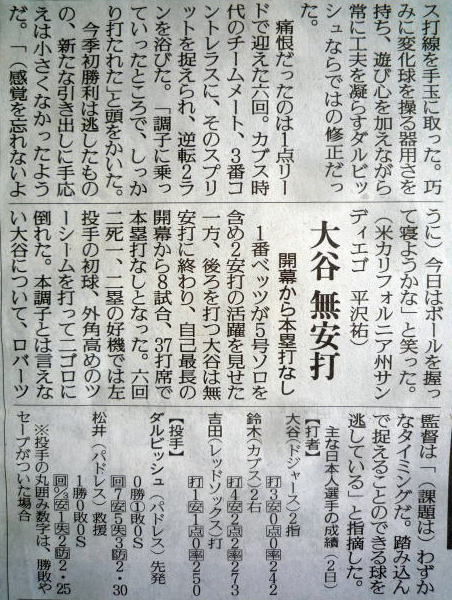 ス打線を手玉に取った。巧
みに変化球を操る器用さを
持ち、遊び心を加えながら
常に工夫を凝らすダルビッ
シュならではの修正だっ
た。
痛恨だったのは1点リー
ドで迎えた六回。カブス時
代のチームメート、3番コ
ントレラスに、そのスプリ
ットを捉えられ、逆転2ラ
ンを浴びた。「調子に乗っ
ていったところで、しっか
り打たれた」と頭をかいた。
今季初勝利は逃したもの
の、新たな引き出しに手応
えは小さくなかったよう
だ。「(感覚を忘れないよ
うに)今日はボールを握っ
て寝ようかな」と笑った。
(米カリフォルニア州サン
ディエゴ 平沢祐)
大谷 無安打
開幕から本塁打なし
1番ベッツが5号ソロを
含め2安打の活躍を見せた
一方、後ろを打つ大谷は無
安打に終わり、自己最長の
開幕から8試合、37打席で
本塁打なしとなった。六回
二死一、二塁の好機では左
投手の初球、外角高めのツ
ーシームを打って二ゴロに
倒れた。本調子とは言えな
い大谷について、ロバーツ
監督は「(課題は)わずか
なタイミングだ。踏み込ん
で捉えることのできる球を
逃している」と指摘した。
主な日本人選手の成績(2日)
【打者】
大谷(ドジャース)2指
打3安0点0率242
鈴木(カブス)2右
打4安2点2率273
吉田(レッドソックス)打
打1安1点0率250
【投手】
ダルビッシュ(パドレス)先発
0勝①敗0S
回7安5失3防2・30
松井(パドレス)救援
1勝0敗0S
回⅔安1失2防2・25
※投手の丸囲み数字は、勝敗や
セーブがついた場合